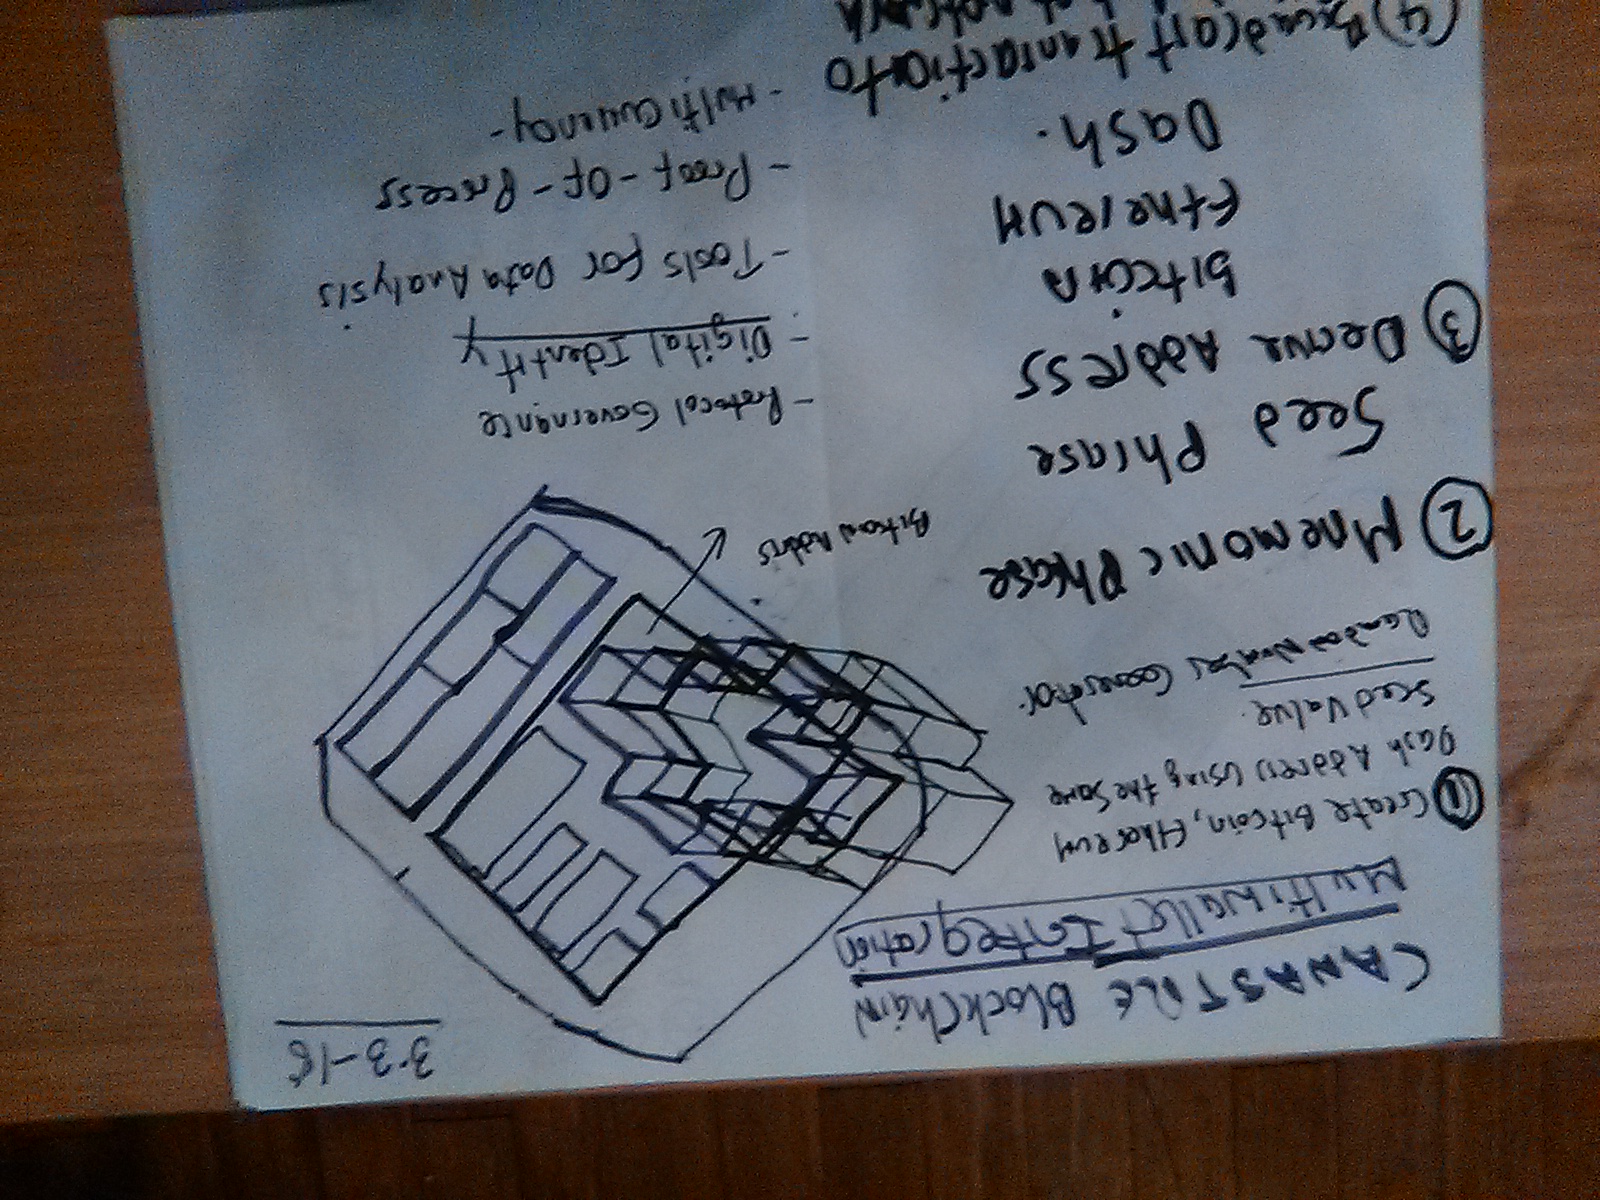 3-3-18
CANASTOLE BlockChain
Multiwallet Integration
① Create Bitcoin, Ethereum
Dash Address using the same
Seed Value.
Random Number Generator
② Mnemonic Phrase
Seed Phrase
③ Derive Address
Bitcoin
Ethereum
Dash.
(4) Broadcast transaction to
Bitcoin Address
- Protocol Governance
- Digital Identity
- Tools for Data Analysis
- Proof-Of-Process
- Multi Currency-